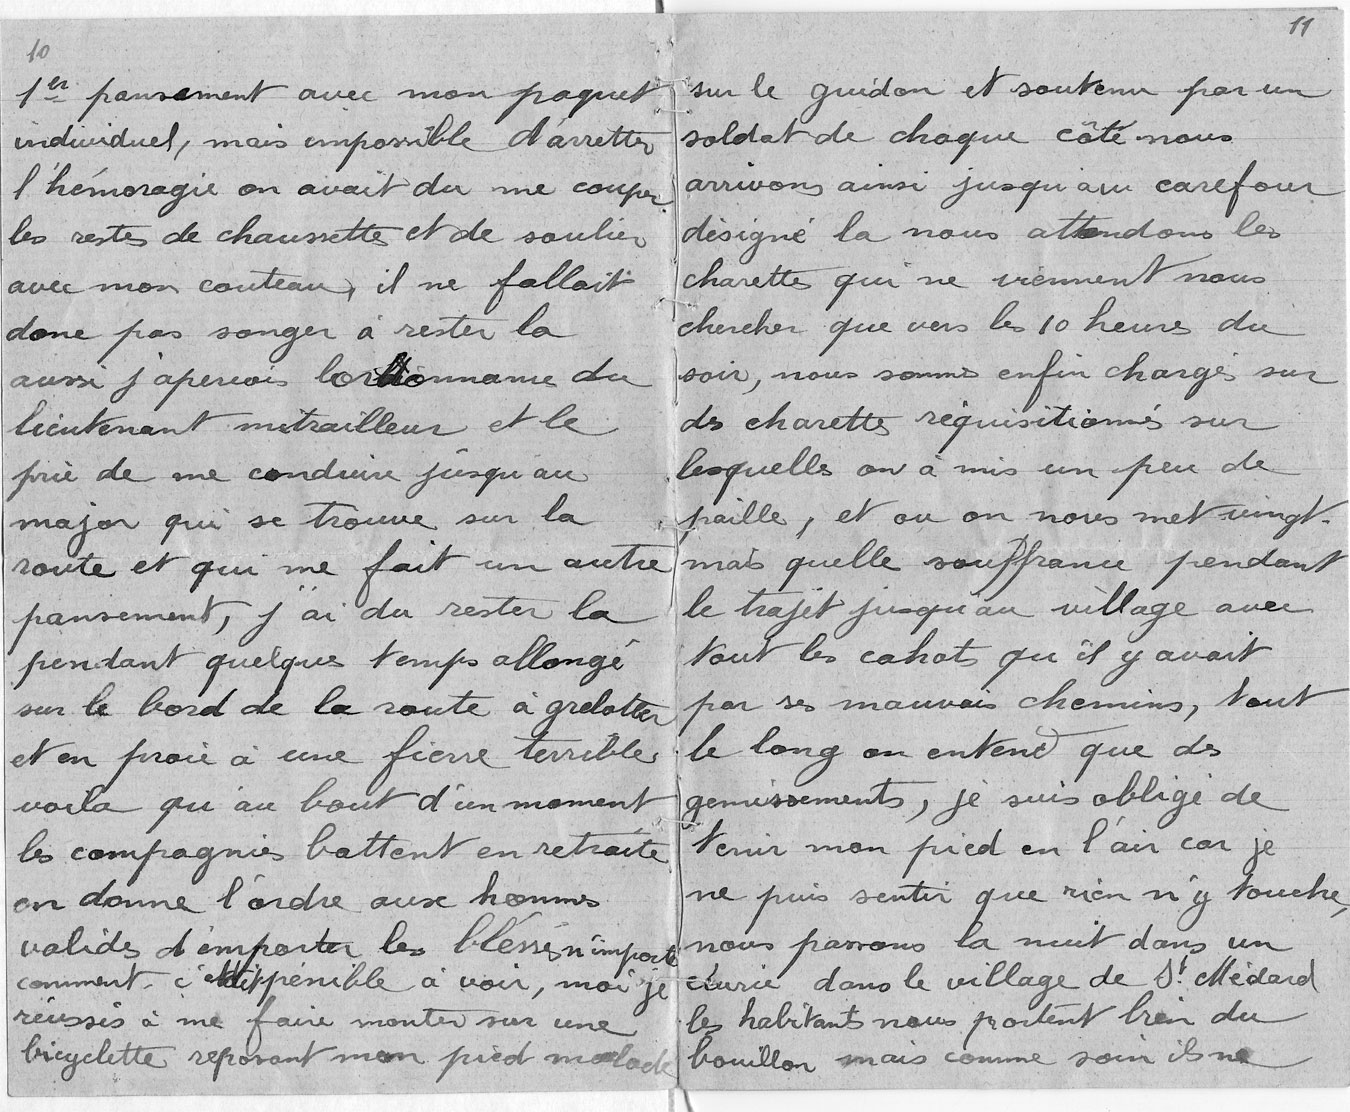 10
1er pansement avec mon paquet
individuel, mais impossible d'arretter
l'hémoragie on avait du me couper
les restes de chaussettes et de soulier
avec mon couteau, il ne fallait
donc pas songer à rester la
aussi j'apercois l'ordonnance du
lieutenant mitrailleur et le
prie de me conduire jusqu'au
major qui se trouve sur la
route et qui me fait un autre
pansement, j'ai du rester la
pendant quelques temps allongé
sur le bord de la route à grelotter
et en proie à une fievre terrible
voila qu'au bout d'un moment
les compagnies battent en retraite
on donne l'ordre aux hommes
valides d'emporter les bléssés n'importe
comment. c'était pénible à voir, moi je
réussis à me faire monter sur une
bicyclette reposant mon pied malade
11
sur le guidon et soutenu par un
soldat de chaque côté nous
arrivons ainsi jusqu'au carefour
désigné la nous attendons les
charettes qui ne viennent nous
chercher que vers les 10 heures du
soir, nous sommes enfin chargés sur
des charettes réquisitionnés sur
lesquelles on à mis un peu de
paille, et ou on nous met vingt.
mais quelle souffrance pendant
le trajet jusqu'au village avec
tout les cahots qu'il y avait
par ses mauvais chemins, tout
le long on entend que des
gemissements, je suis obligé de
tenir mon pied en l'air car je
ne puis sentir que rien n'y touche,
nous passons la nuit dans un
écurie dans le village de St Médard
les habitants nous portent bien du
bouillon mais comme soin ils ne